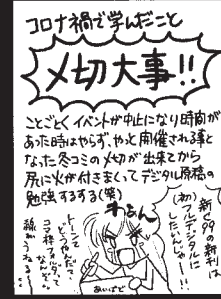 コロナ禍で学んだこと
〆切大事!!
ことごとくイベントが中止になり時間が
あった時はやらず、やっと開催される事と
なった冬コミの〆切が出来とから
尻に火が付きまくってデジタル原稿の
勉強するする(笑)
わぁん
新しC99の新刊は
(初)フルデジタルに
したいんじゃー!!
トーンて
どうやんだ?
コマ枠フォルダって
なんだ?
線がうねる~
あいぱど